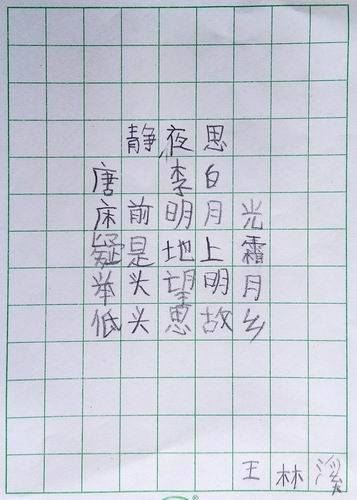 静夜思
唐 李白
床前明月光
疑是地上霜
举头望明月
低头思故乡
王林溪